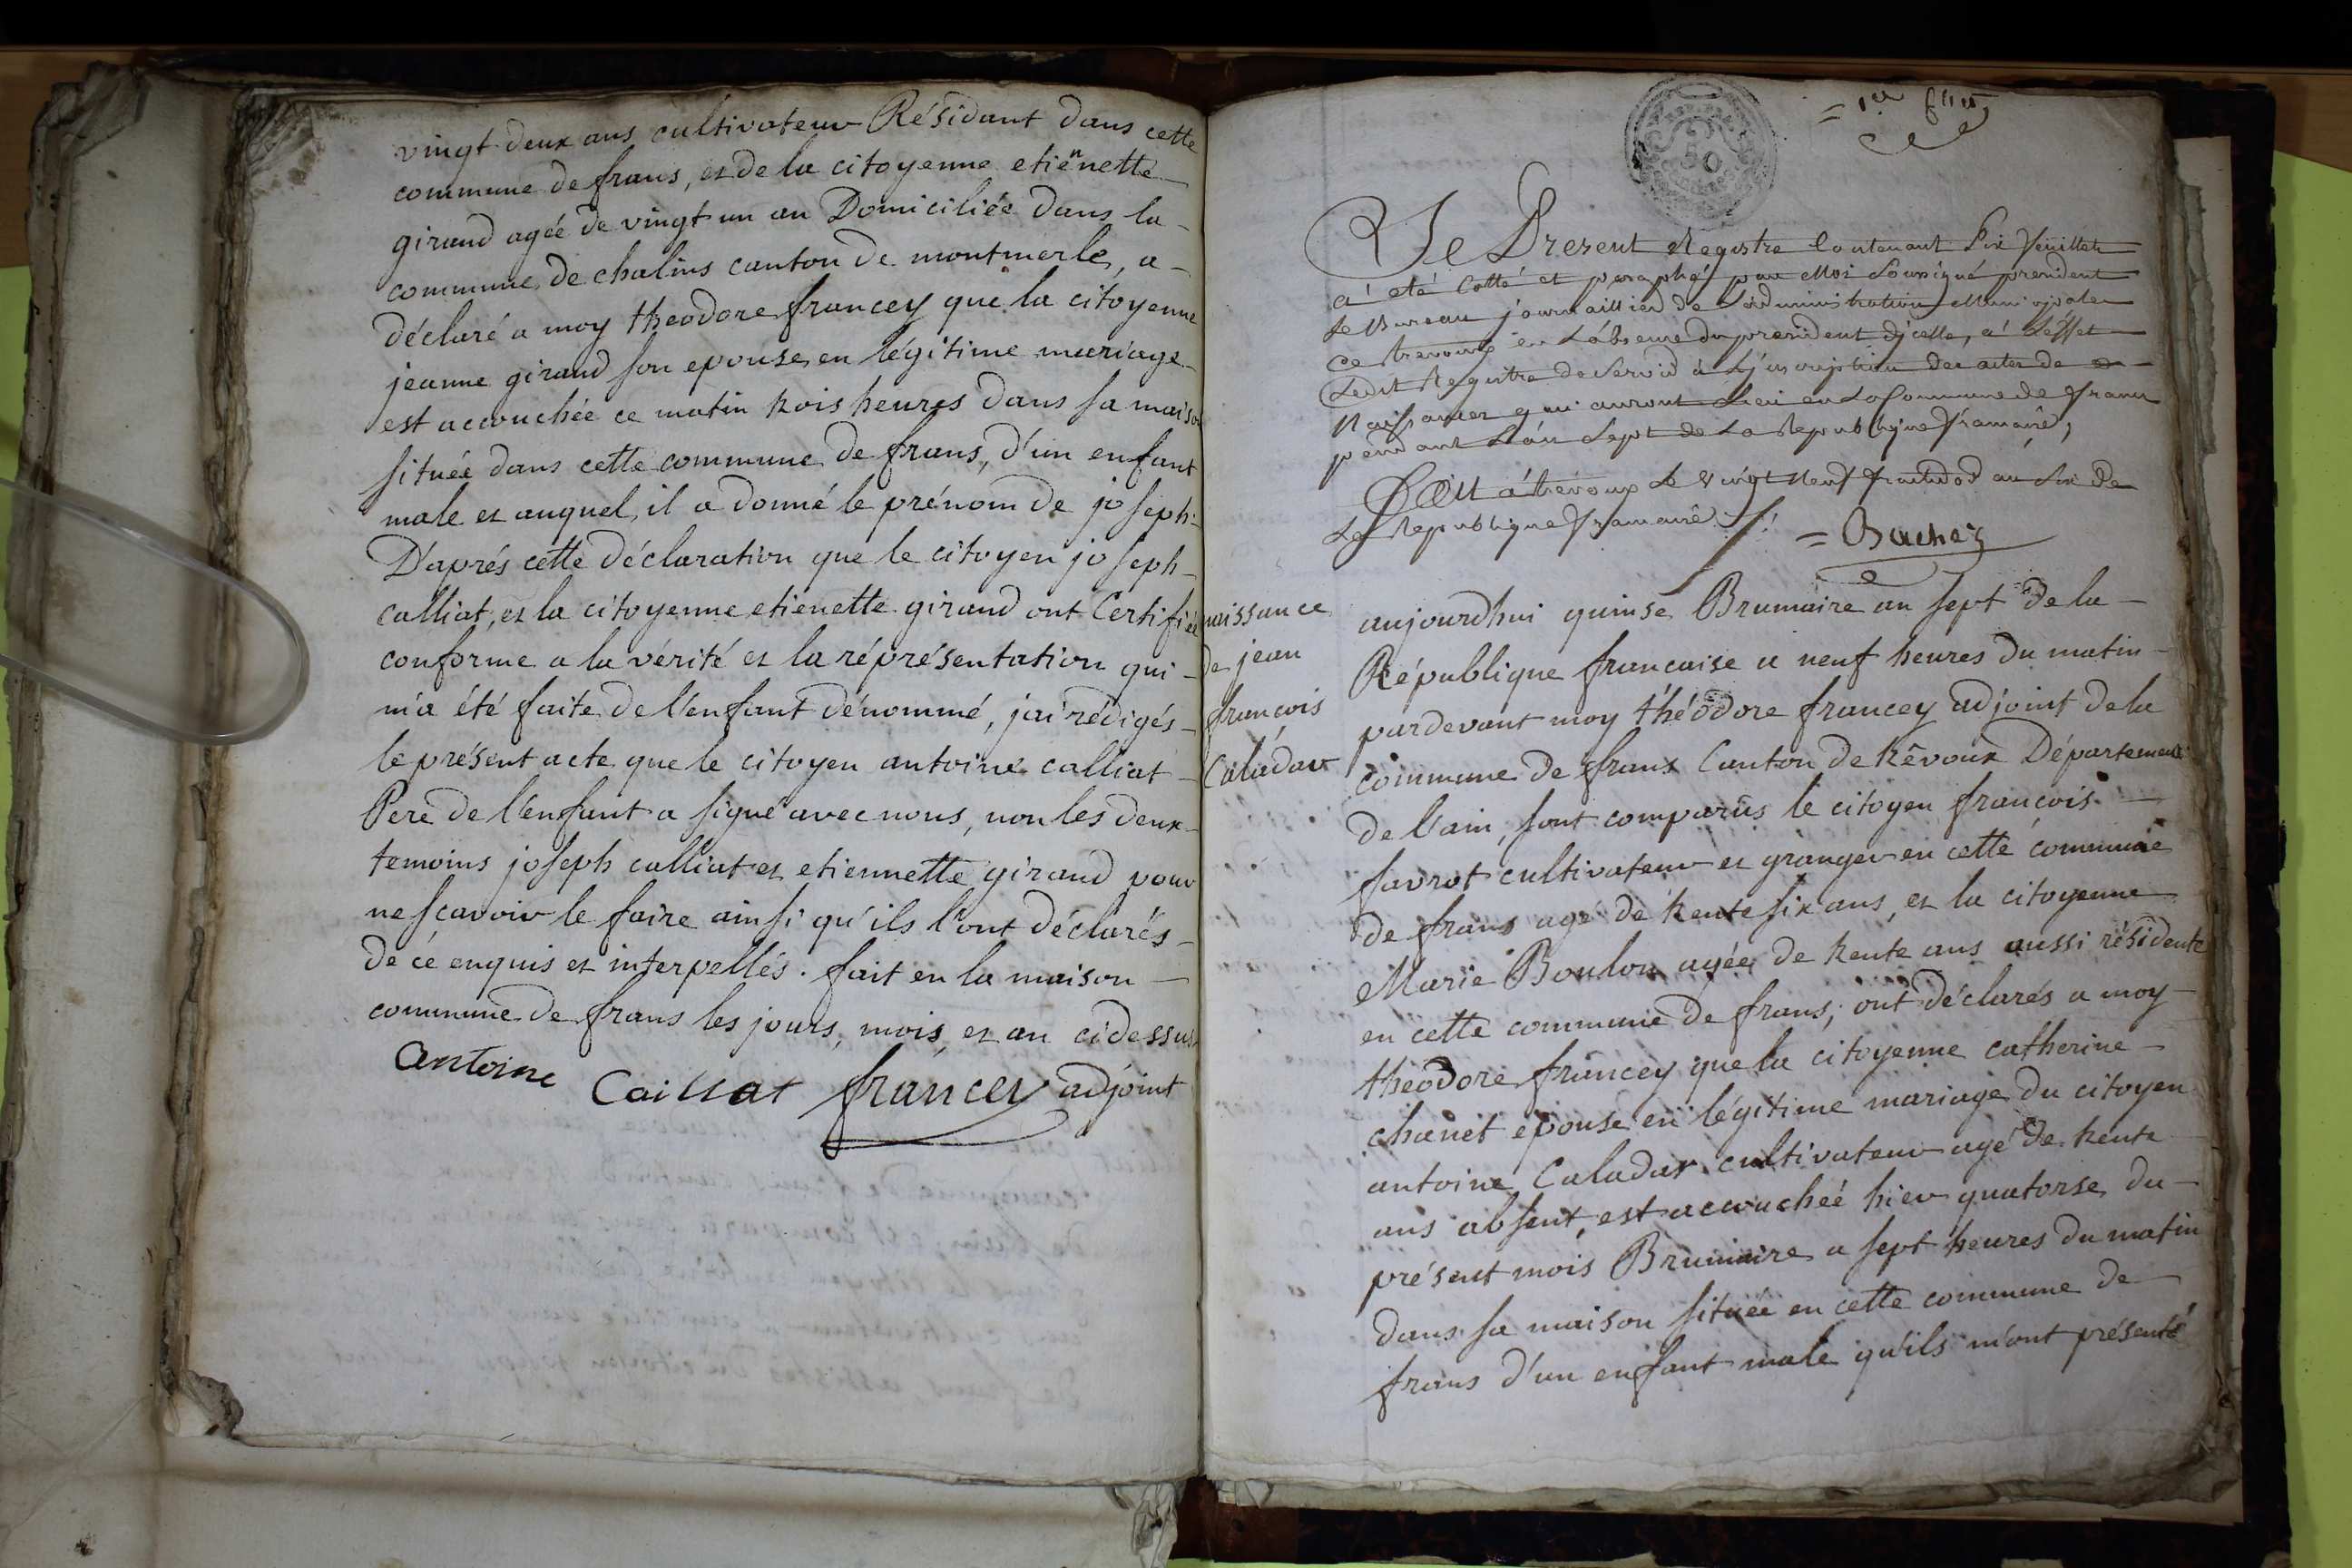 vingt deux ans cultivateur Résidant dans cette
commune de frans, et de la citoyenne etiennette
giraud agée de vingt un an Domiciliée dans la
commune de chalins canton de montmerle, a
déclaré a moy theodore francey que la citoyenne
jeanne giraud son epouse en légitime mariage
est accouchée ce matin trois heures dans sa maison
située dans cette commune de frans, d'un enfant
male et auquel il a donné le prénom de joseph.
D'aprés cette déclaration que le citoyen joseph
calliat, et la citoyenne etienette giraud ont Certifiée
conforme a la vérité et la réprésentation qui
m'a été faite de l'enfant dénommé, j'ai rédigés
le présent acte que le citoyen antoine calliat
Pere de l'enfant a signé avec nous, non les deux
temoins joseph calliat et etiennette giraud pour
ne sçavoir le faire ainsi qu'ils l'ont déclarés
de cé enquis et interpellés. fait en la maison
commune de frans les jours, mois et an ci dessus
antoine Caillat francey adjoint
50
= 1er feuit
Le Present Registre Contenant Six feuillets
a été Cotté et paraphé par Moi Soussigné president
Le Bureau journaillier de L'administration Municipale
ce trevoux en L'absence du president d'jcelle, a' L'effet
Ledit Registre de Servir à L'jnscription des actes de
Naissances qui auront Lieu en La Commune de frans
pendant L'an Sept de La Republique francaise,
Fait à trevoux Le vingt neuf fructidor an Six de
La Republique francaise
= Buchez
naissance
de jean
francois
Caladar
aujourdhui quinse Brumaire an sept de la
République francaise a neuf heures du matin
pardevant moy théodore francey adjoint de la
commune de frans Canton de trévoux Département
de l'ain, sont comparus le citoyen francois
favrot cultivateur et granger en cette commune
de frans agé de trente six ans, et la citoyenne
Marie Boulon agée de trente ans aussi résidente
en cette commune de frans; ont déclarés a moy
theodore francey que la citoyenne catherine
chanet epouse en légitime mariage du citoyen
antoine Caladar cultivateur agé de trente
ans absent, est accouchée hier quatorse du
présent mois Brumaire a sept heures du matin
dans sa maison située en cette commune de
frans d'un enfant male qu'ils m'ont présenté